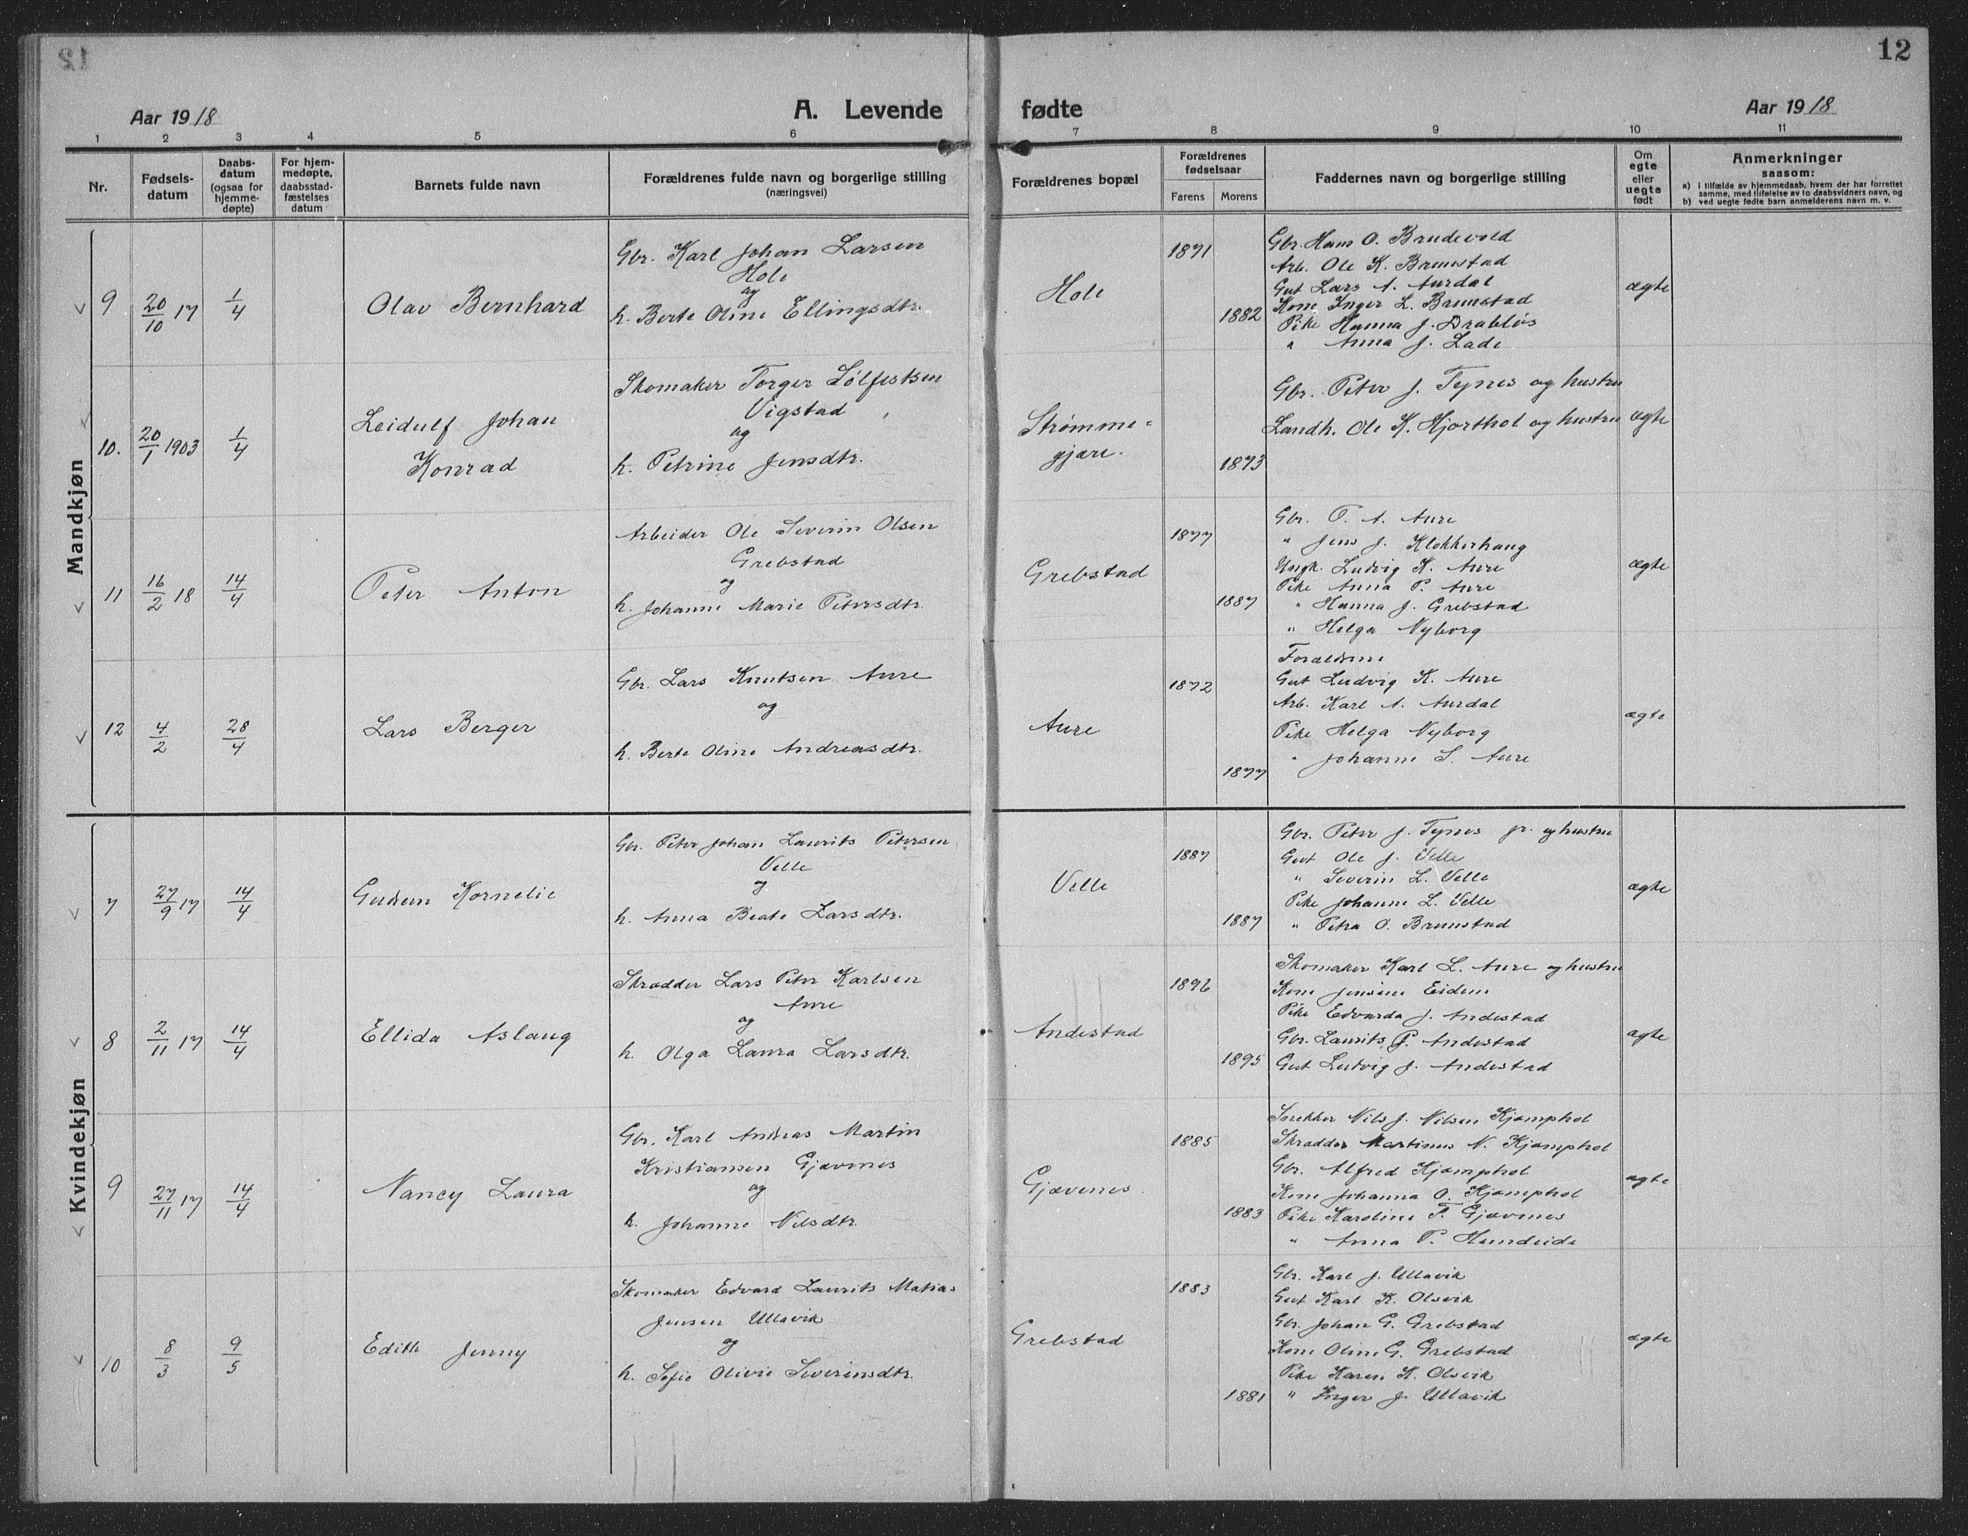 12
Aar 1918
A. Levende fødte
Aar 1918
1 2 3 4 5 6 7 8 9 10 11
Nr.
Fødsels-
datum
Daabs-
datum
(ogsaa for
hjemme-
døpte)
For hjem-
medøpte,
daabsstad-
fæstelses
datum
Barnets fulde navn
Forældrenes fulde navn og borgerlige stilling
(næringsvei)
Forældrenes bopæl
Forældrenes
fødselsaar
Farens Morens
Faddernes navn og borgerlige stilling
Om
egte
eller
uegte
født
Anmerkninger
saasom:
a) I tilfælde av hjemmedaab, hvem der har forrettet
samme, med tilføielse av to daabsvidners navn, og
b) ved uegte fødte barn anmelderens navn m. v.
Mandkjøn
9 20/10 17 1/4 Olav Bernhard
Gbr. Karl Johan Larsen
Hole
og
h. Berte Oline Ellingsdtr.
Hole
1871
1882
Gbr. Hans O. Brudevold
Arb. Ole K. Brunstad
Gut Lars A. Aurdal
Kone Inger L. Brunstad
Pike Hanna J. Drabløs
" Anna J. Lade
ægte
10. 20/1 1903 1/4 Leidulf Johan
Konrad
Skomaker Torger Sølfestsen
Vigstad
og
h. Petrine Jensdtr.
Strømme-
gjære.
1873
Gbr. Peter J. Tynes og hustru
Landh. Ole K. Hjorthol og hustru
ægte
11 16/2 18 14/4 Peter Anton
Arbeider Ole Severin Olsen
Grebstad
og
h. Johanne Marie Petersdtr.
Grebstad
1877
1887
Gbr. P. A. Aure
" Jens J. Klokkerhaug
Ungk. Ludvig K. Aure
Pike Anna P. Aure
" Hanna J. Grebstad
" Helga Nyborg
ægte
12 4/2 28/4 Lars Berger
Gbr. Lars Knutsen Aure
og
h. Berte Oline Andreasdtr.
Aure
1872
1877
Forældrene
Gut Ludvig K. Aure
Arb. Karl A. Aurdal
Pike Helga Nyborg
" Johanne S. Aure
ægte
Kvindekjøn
7 27/9 17 14/4 Gudrun Kornelie
Gbr. Peter Johan Laurits Petersen
Velle
og
h. Anna Beate Larsdtr.
Velle
1887
1887
Gbr. Peter J. Tynes jr. og hustru
Gut Ole J. Velle
" Severin L. Velle
Pike Johanne L. Velle
" Petra O. Brunstad
ægte
8 2/11 17 14/4 Ellida Aslaug
Skrædder Lars Peter Karlsen
Aure
og
h. Olga Laura Larsdtr.
Andestad
1896
1895
Skomaker Karl L. Aure og hustru
Kone Jensine Eidem
Pike Edvarda J. Andestad
Gbr. Laurits P. Andestad
Gut Ludvig J. Andestad
ægte
9 27/11 17 14/4 Nancy Laura
Gbr. Karl Andreas Martin
Kristiansen Gjævenes
og
h. Johanne Nilsdtr.
Gjævenes
1885
1883
Snekker Nils J. Nilsen Kjemphol
Skrædder Martinus N. Kjemphol
Gbr. Alfred Kjemphol
Kone Johanna O. Kjemphol
Pike Karoline T. Gjævenes
" Anna P. Hundeide
ægte
10 8/3 9/5 Edith Jenny
Skomaker Edvard Laurits Matias
Jensen Ullavik
og
h. Sofie Olivie Severinsdtr.
Grebstad
1883
1881
Gbr. Karl J. Ullavik
Gut Karl K. Olsvik
Gbr. Johan G. Grebstad
Kone Oline G. Grebstad
Pike Karen K. Olsvik
" Inger J. Ullavik
ægte